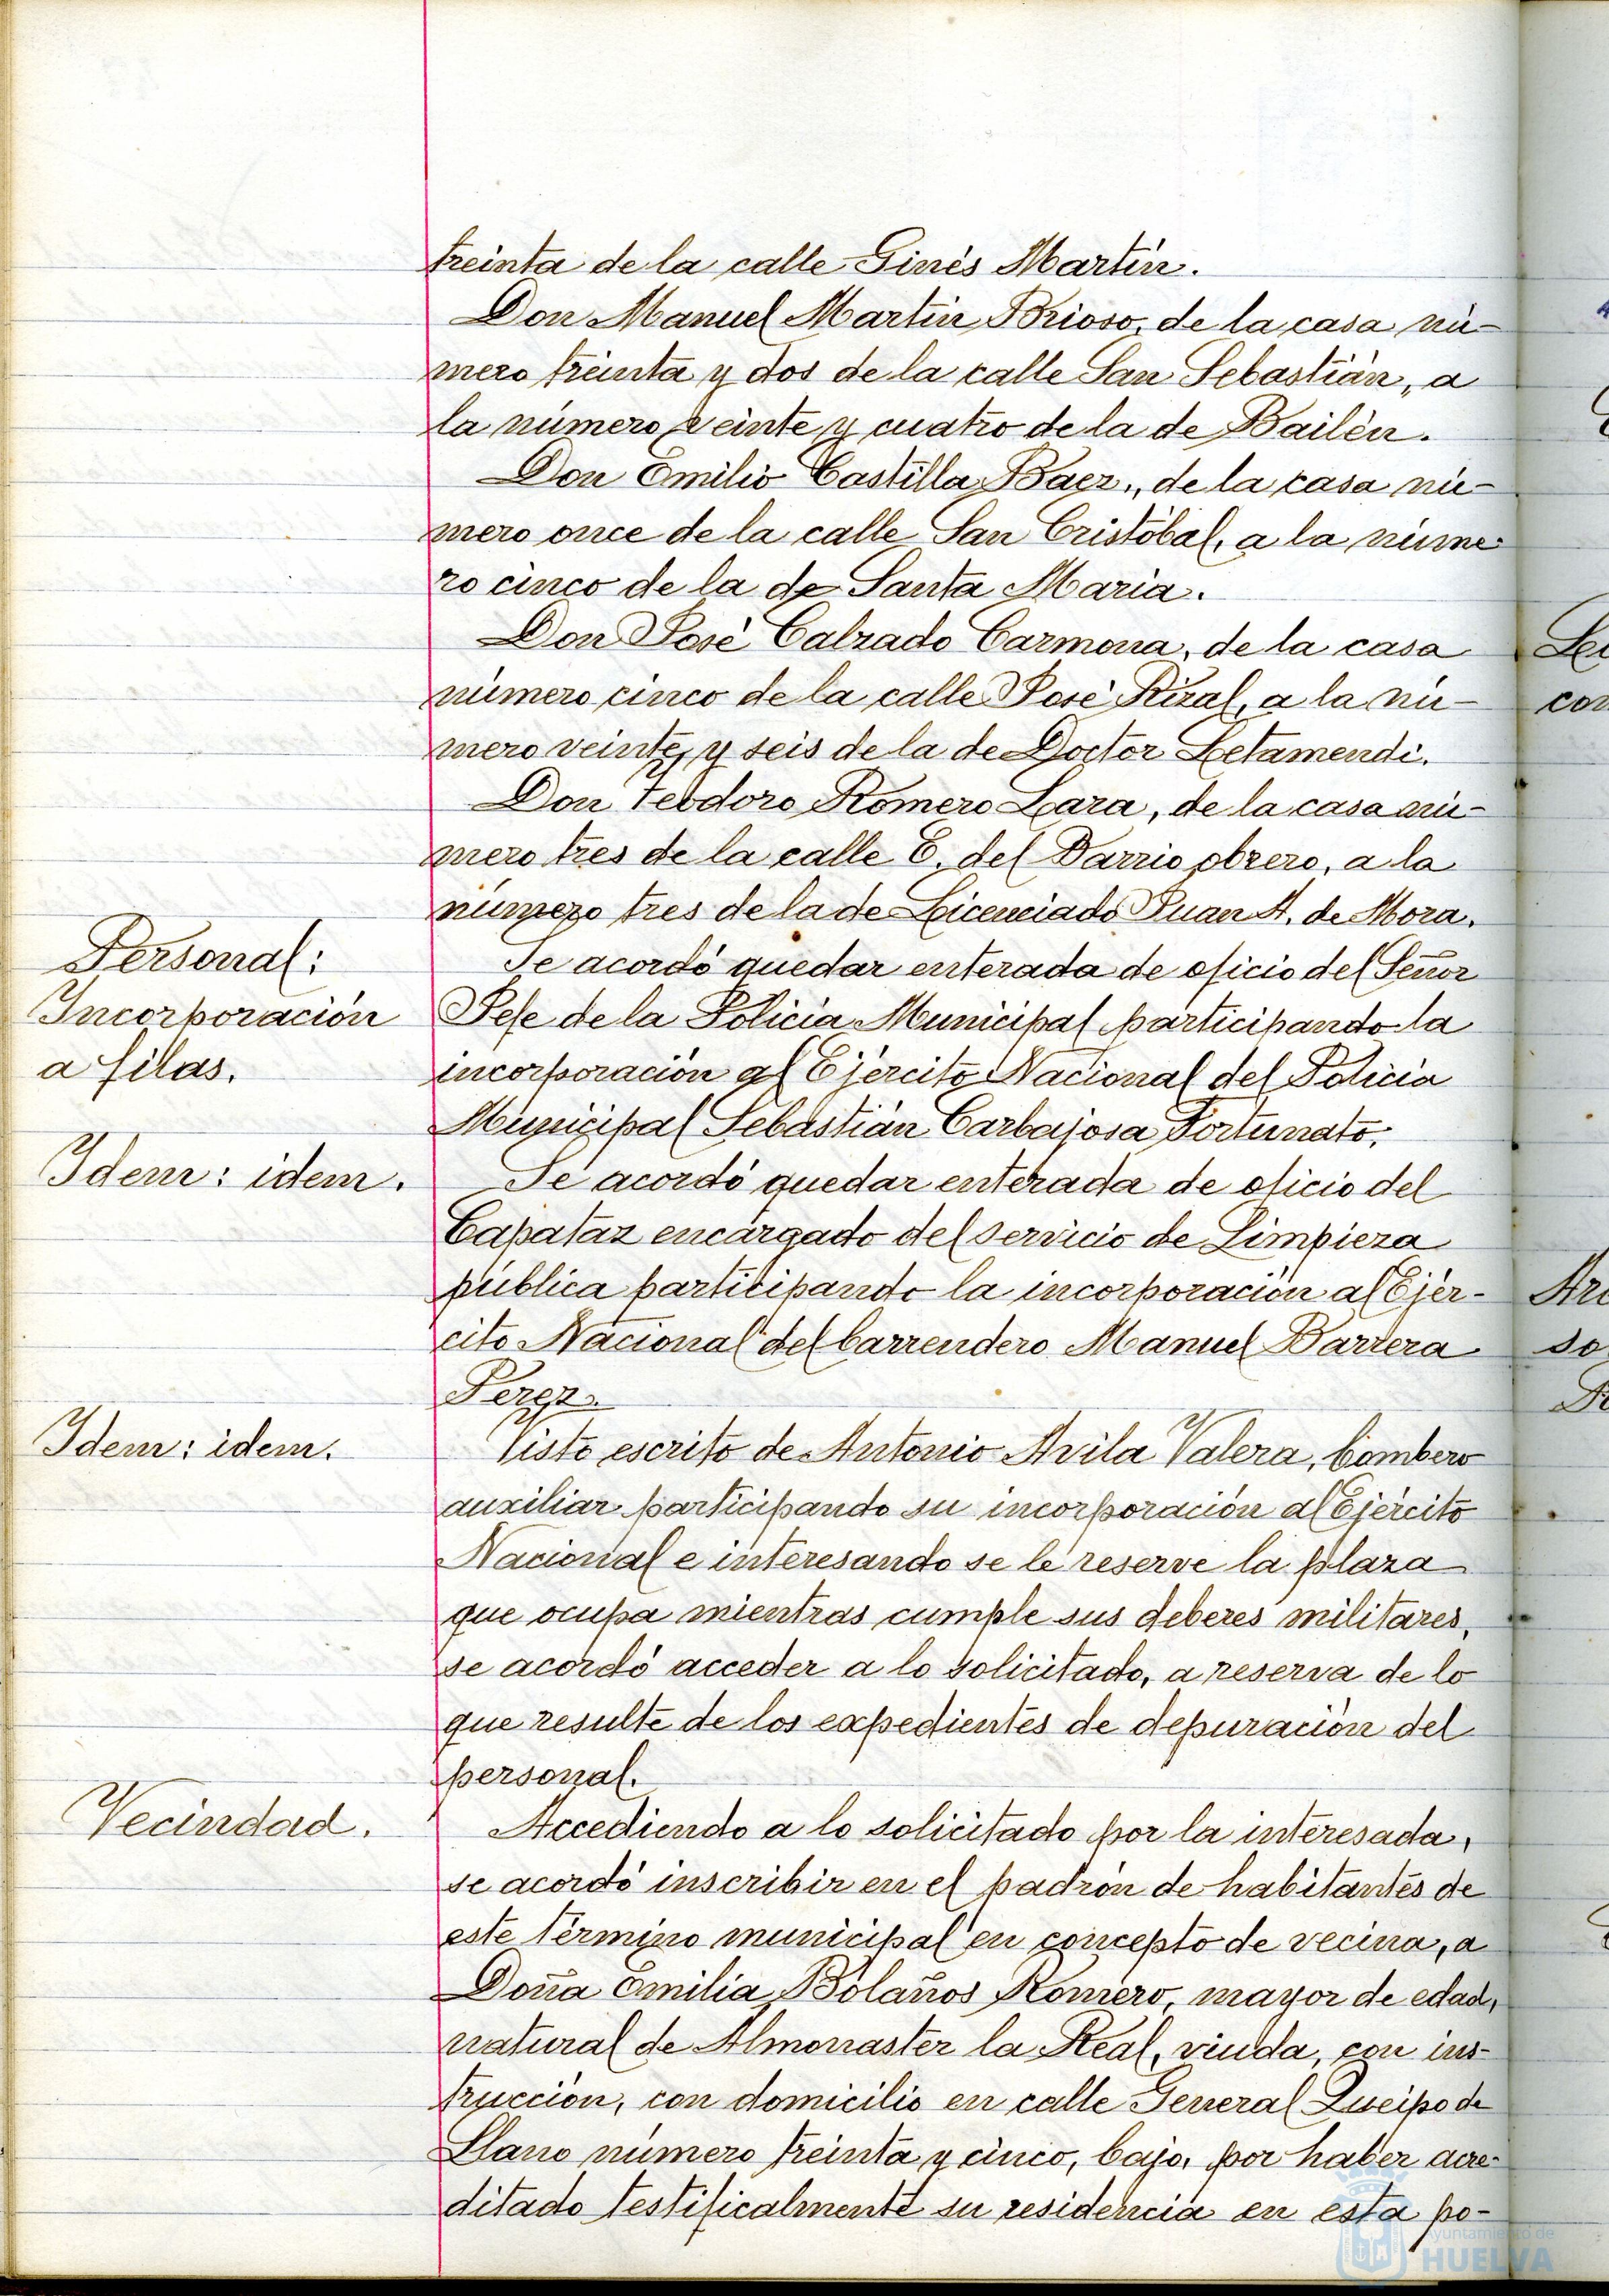 treinta de la calle Ginés Martín.
Don Manuel Martín Brioso, de la casa nú-
mero treinta y dos de la calle San Sebastián, a
la número veinte y cuatro de la de Bailén.
Don Emilio Castilla Baez, de la casa nú-
mero once de la calle San Cristóbal, a la núme-
ro cinco de la de Santa María.
Don José Calzado Carmona, de la casa
número cinco de la calle José Rizal, a la nú-
mero veinte y seis de la de Doctor Letamendi.
Don Teodoro Romero Lara, de la casa nú-
mero tres de la calle E. del Barrio obrero, a la
número tres de la de Licenciado Juan A. de Mora.
Personal:
Incorporación
a filas.
Se acordó quedar enterada de oficio del Señor
Jefe de la Policía Municipal participando la
incorporación al Ejército Nacional del Policía
Municipal Sebastián Carbajosa Fortunato.
Idem: idem.
Se acordó quedar enterada de oficio del
Capataz encargado del servicio de Limpieza
pública participando la incorporación al Ejér-
cito Nacional del barrendero Manuel Barrera
Perez.
Idem: idem.
Visto escrito de Antonio Avila Valera, bombero
auxiliar participando su incorporación al Ejército
Nacional e interesando se le reserve la plaza
que ocupa mientras cumple sus deberes militares,
se acordó acceder a lo solicitado, a reserva de lo
que resulte de los expedientes de depuración del
personal.
Vecindad.
Accediendo a lo solicitado por la interesada,
se acordó inscribir en el padrón de habitantes de
este término municipal en concepto de vecina, a
Doña Emilia Bolaños Romero, mayor de edad,
natural de Almonaster la Real, viuda, con ins-
trucción, con domicilio en calle General Queipo de
Llano número treinta y cinco, bajo, por haber acre-
ditado testificalmente su residencia en esta po-
Ayuntamiento de
HUELVA